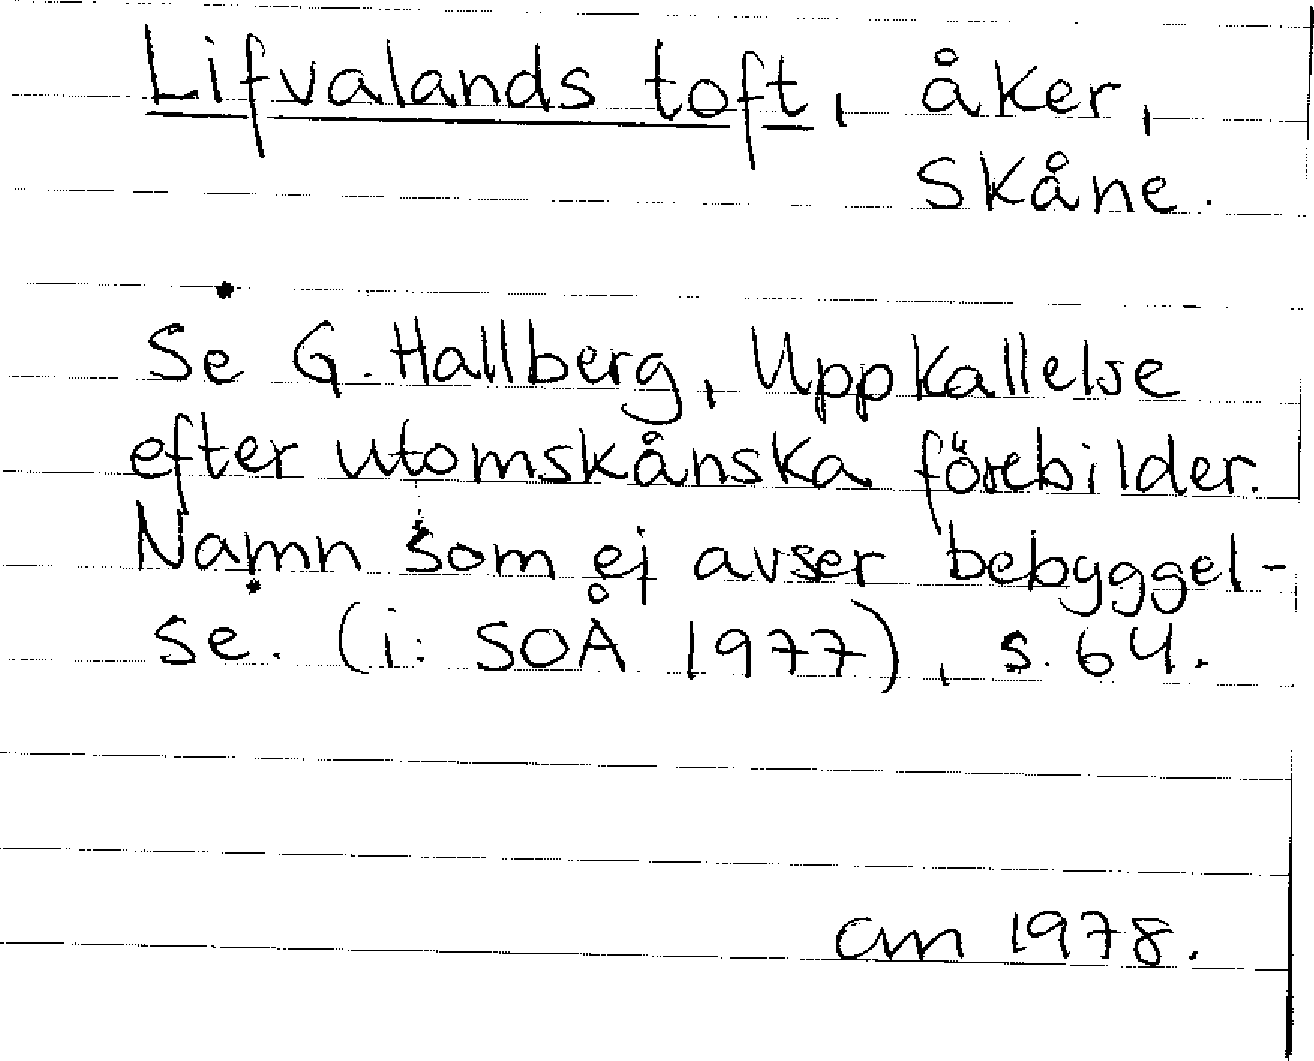 Lifvalands toft, åker,
Skåne.
Se G. Hallberg, Uppkallelse
efter utomskånska förebilder.
Namn som ej avser bebyggel-
se. (i: SOÅ 1977), s. 64.
am 1978.